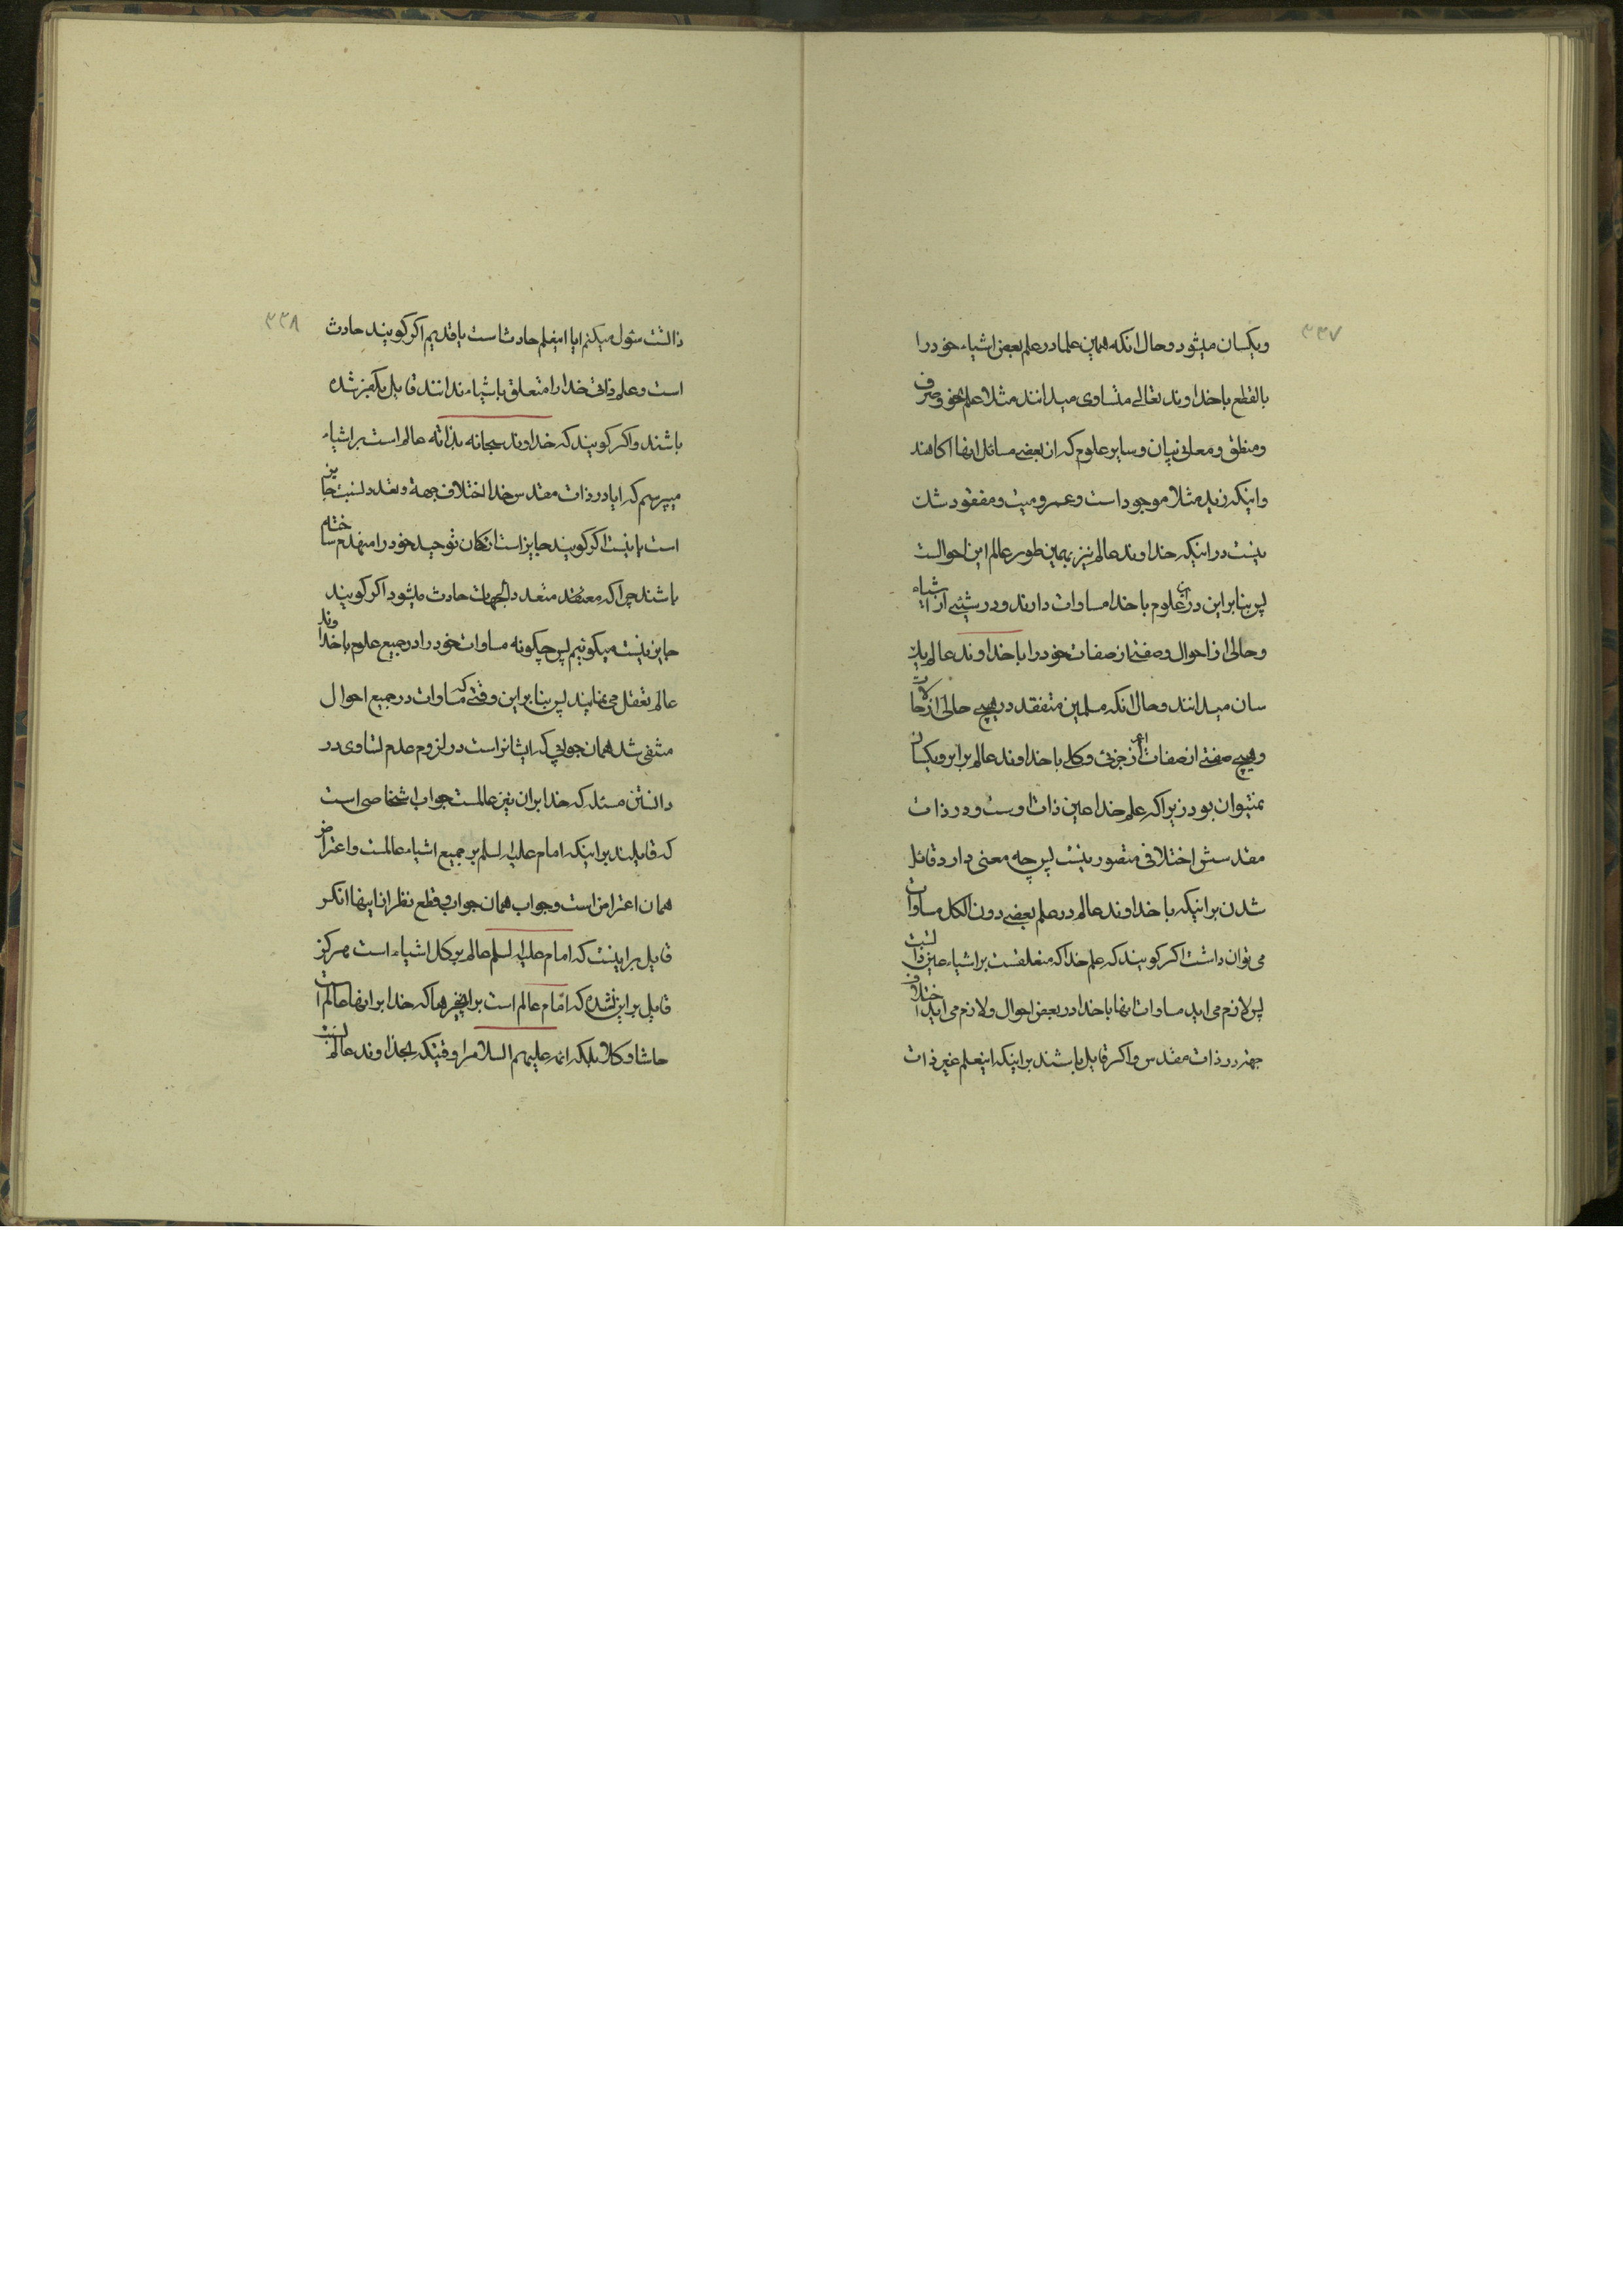 ۳۳۷
ویکسان میشود وحال انکه همین علما در علم بعض اشیاء خود را
بالقطع با خداوند تعالی متساوی میدانند مثلا علم نحو وصرف
ومنطق ومعانی بیان وسایر علوم که از بعضی مسائل انها اکاهند
واینکه زید مثلا موجود است وعمرو میت ومفقود شک
نیست در اینکه خداوند عالم نیز بهمین طور عالم این احوالست
پس بنابراین در علوم با خدا مساوات دارند ودر شیئی از اشیاء
وحالی از احوال وصفتی از صفات خود را با خداوند عالم یک
سان میدانند وحال انکه مسلمین متفقند در هیچ حالی از حالات
وهیچ صفتی از صفات از جزئی وکلی با خداوند عالم برابر ویکسان
نمیتوان بود زیرا که علم خدا عین ذات اوست ودر ذات
مقدسش اختلافی متصور نیست پس چه معنی دارد قائل
شدن بر اینکه با خداوند عالم در علم بعضی دون الکل مساوات
می توان داشت اکر کویند که علم خدا که متعلقست بر اشیاء عین ذاتست
پس لازم می اید مساوات انها با خدا در بعض احوال ولازم می اید اختلاف
جهة در ذات مقدس واکر قایل باشند بر اینکه اینعلم غیر ذات
۳۳۸
ذاتست سؤل میکنم ایا اینعلم حادث است یا قدیم اکر کویند حادث
است وعلم ذاتی خدا را متعلق باشیاء ندانند قایل بکفر شده
باشند واکر کویند که خداوند سبحانه بذاته عالم است بر اشیاء
میپرسم که ایا در ذات مقدس خدا اختلاف جهة وتعدد نسبت جایز
است یا نیست اکر کویند جایز است ارکان توحید خود را منهدم ساخته
باشند چرا که متعدد الجهات حادث میشود اکر کویند
جایز نیست میکوئیم پس چکونه مساوات خود را در جمیع علوم با خداوند
عالم تعقل می نمایند پس بنابراین وقتی که مساوات در جمیع احوال
منتفی شد همان جوابی که ایشانراست در لزوم عدم تساوی در
دانستن مسئله که خدا بران نیز عالمست جواب اشخاصی است
که قایلند بر اینکه امام علیه السلم بر جمیع اشیاء عالمست واعتراض
همان اعتراض است وجواب همان جواب وقطع نظر از اینها انکه
قایل بر اینست که امام علیه السلم عالم بر کل اشیاء است هرکز
قایل بر این نشده که امام عالم است بر انچیزها که خدا بر انها عالم است
حاشا وکلا بلکه ائمه علیهم السلام را وقتیکه بخداوند عالم نسبت